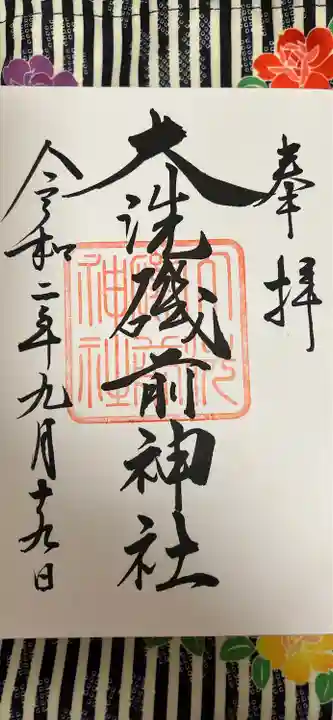 奉拝
大洗磯前神社
令和二年九月十九日
大洗
磯前
神社